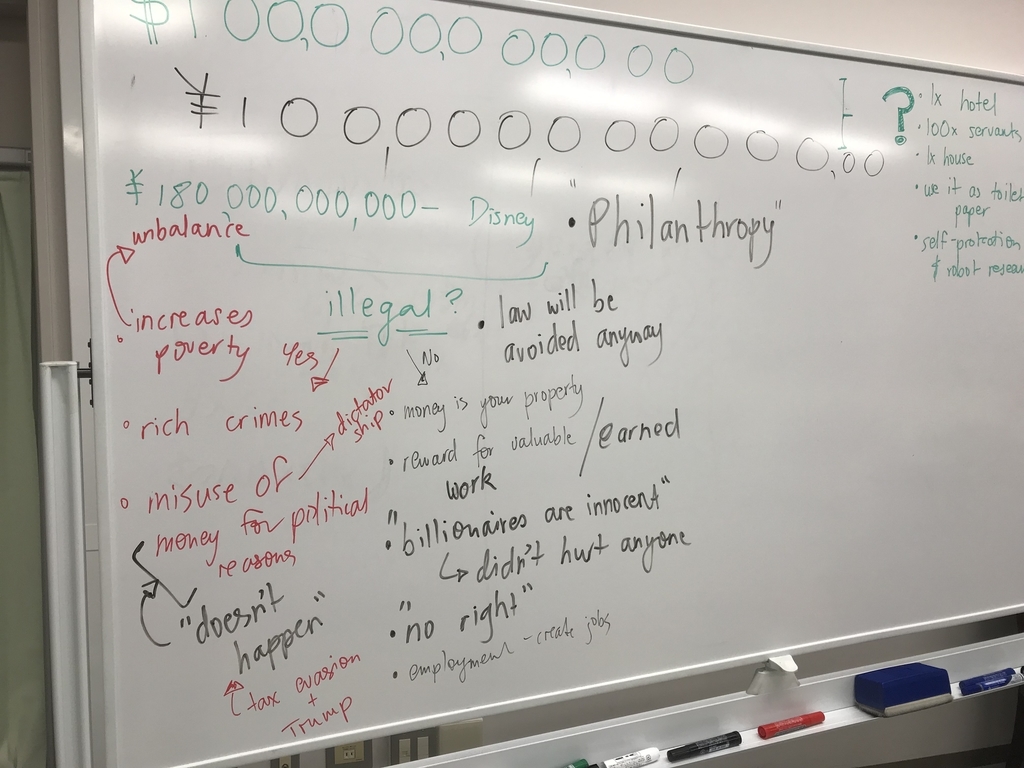 $1.00,0 00,0 00,0 00
¥100,000,000,000,00
¥180,000,000,000- Disney
unbalance
illegal?
increases
poverty
Yes
No
• rich crimes
dictator
ship
• misuse of
money for political
reasons
"doesn't
happen"
tax evasion
+
Trump
• "Philanthropy"
• law will be
avoided anyway
• money is your property
• reward for valuable / earned
work
• "billionaires are innocent"
↳ didn't hurt anyone
• "no right"
• employment - create jobs
?
• 1x hotel
• 100x servants
• 1x house
• use it as toilet
paper
• self-protection
& robot resear